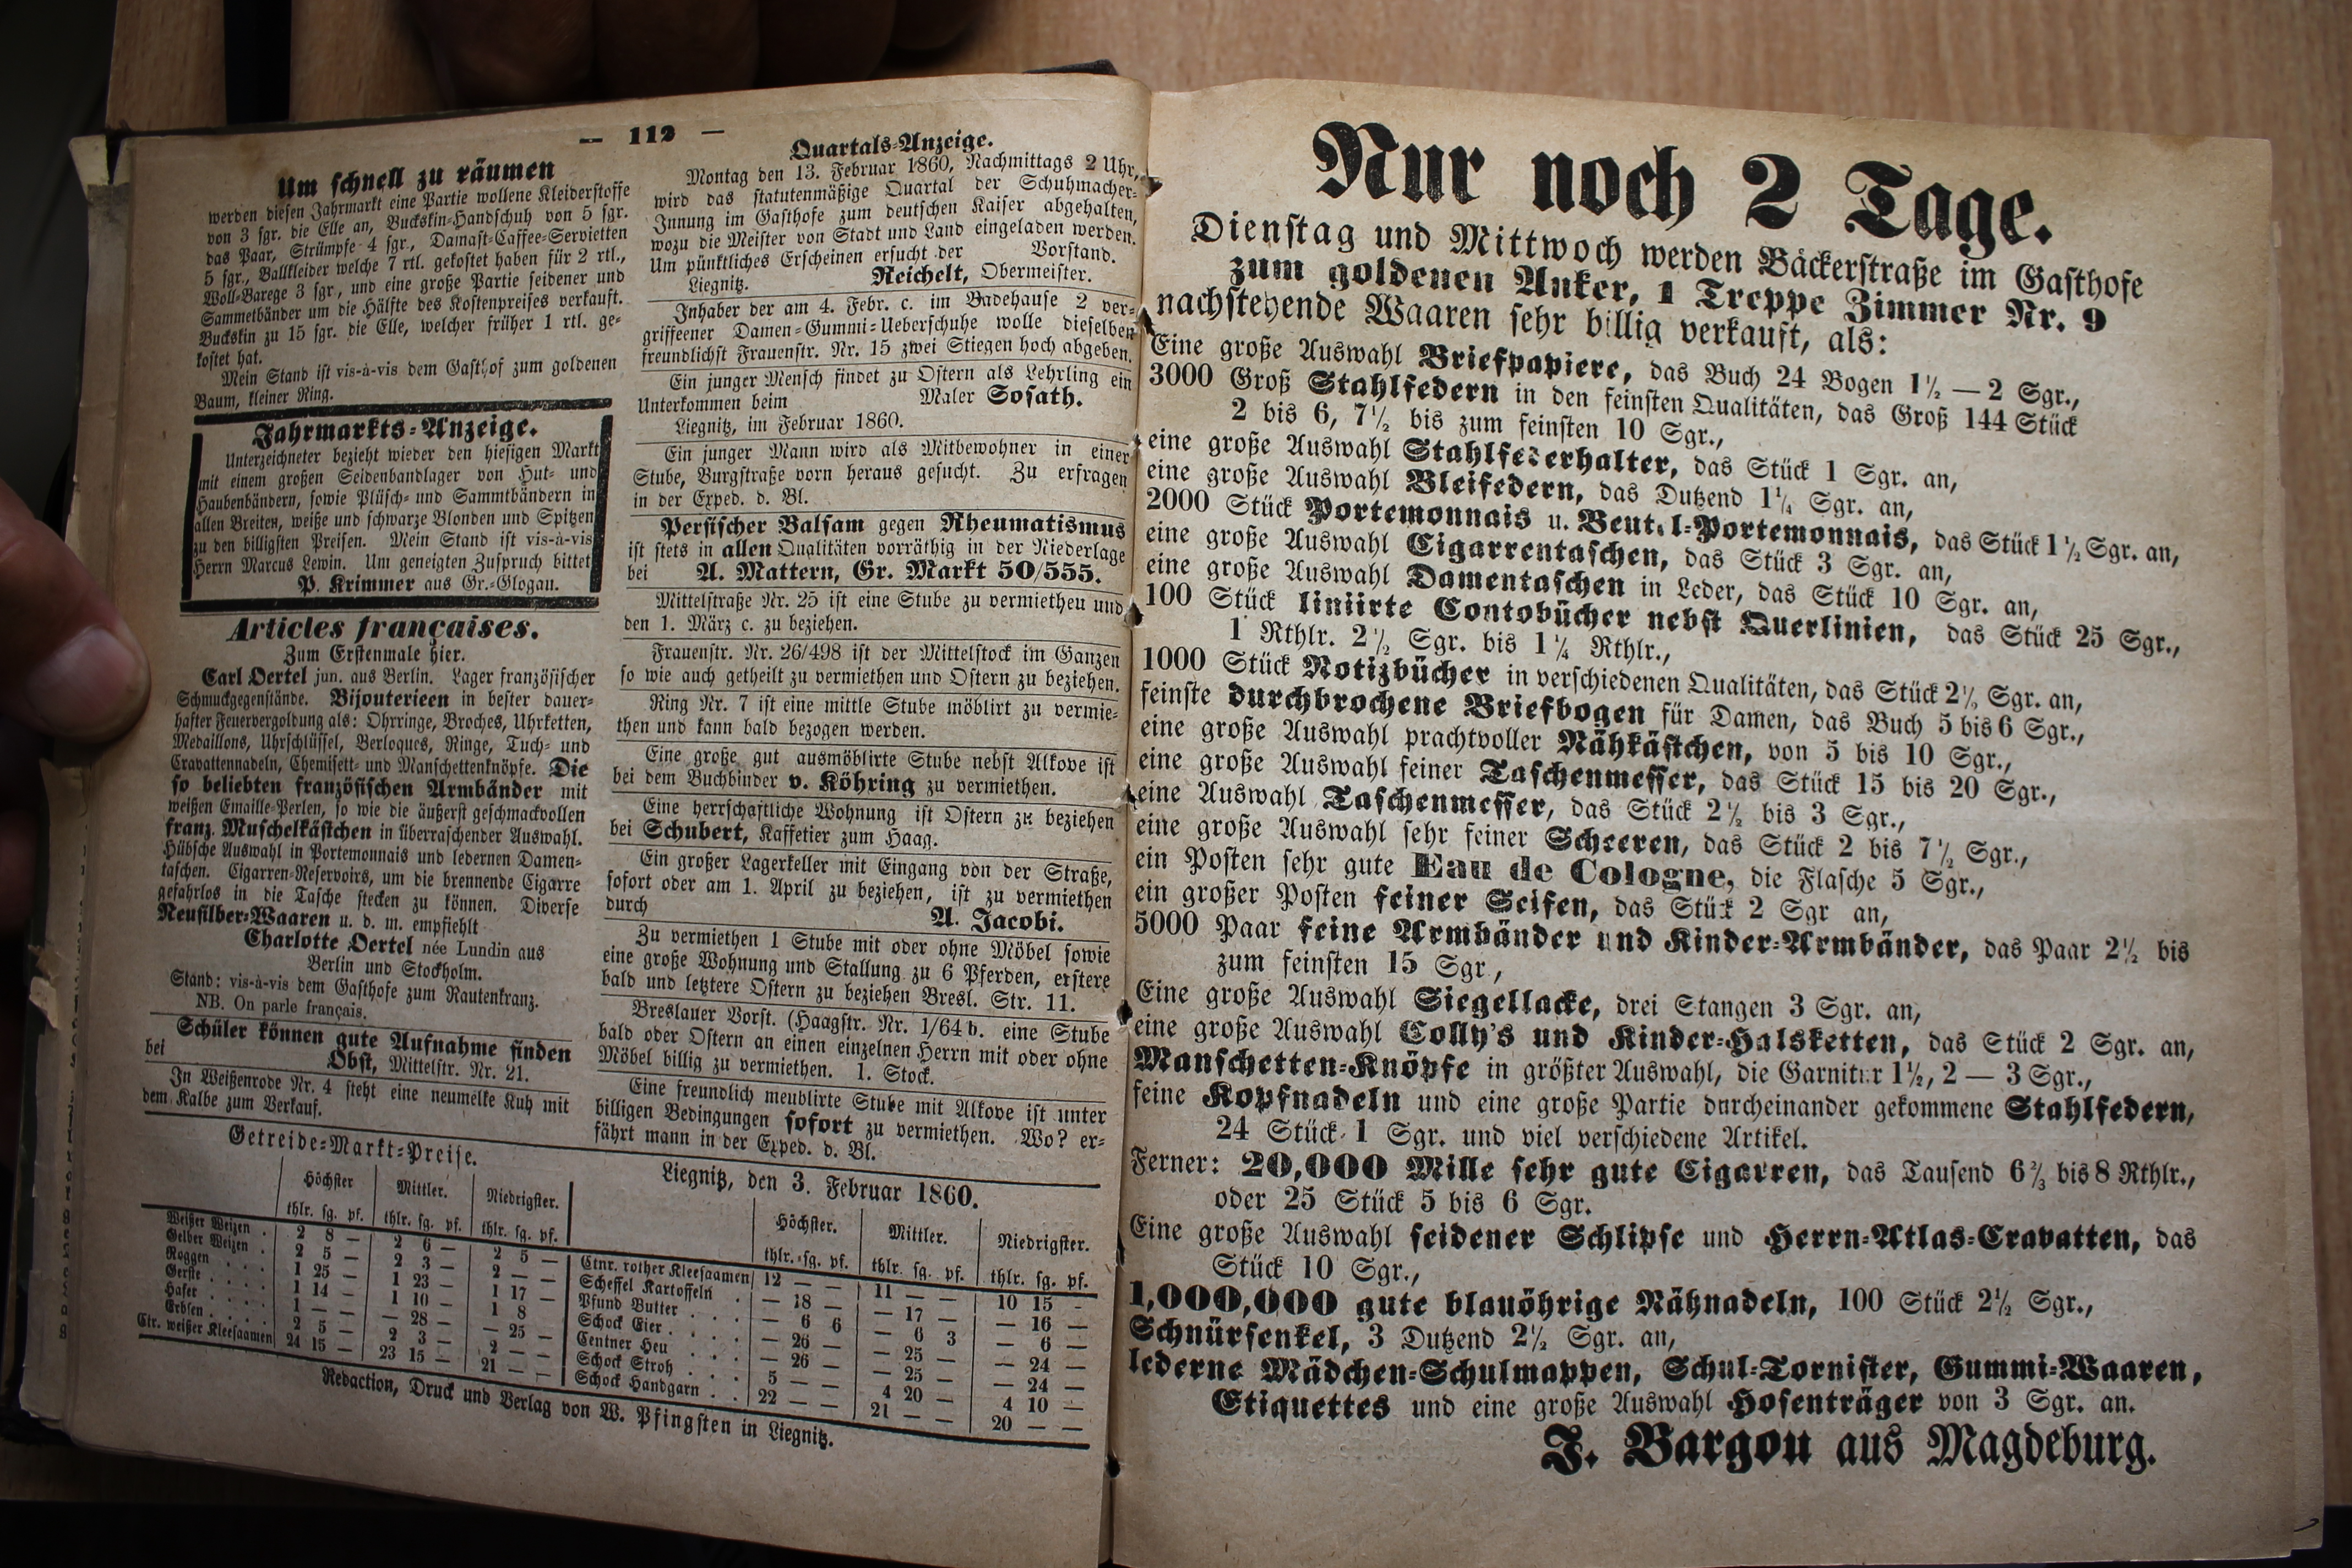 — 112 —
Um schnell zu räumen
werden diesen Jahrmarkt eine Partie wollene Kleiderstoffe
von 3 sgr. die Elle an, Buckskin-Handschuh von 5 sgr.
das Paar, Strümpfe 4 sgr., Damast-Caffee-Servietten
5 sgr., Ballkleider welche 7 rtl. gekostet haben für 2 rtl.,
Woll-Barege 3 sgr, und eine große Partie seidener und
Sammetbänder um die Hälfte des Kostenpreises verkauft.
Buckskin zu 15 sgr. die Elle, welcher früher 1 rtl. ge-
kostet hat.
Mein Stand ist vis-à-vis dem Gasthof zum goldenen
Baum, kleiner Ring.
Jahrmarkts-Anzeige.
Unterzeichneter bezieht wieder den hiesigen Markt
mit einem großen Seidenbandlager von Hut- und
Haubenbändern, sowie Plüsch- und Sammtbändern in
allen Breiten, weiße und schwarze Blonden und Spitzen
zu den billigsten Preisen. Mein Stand ist vis-à-vis
Herrn Marcus Lewin. Um geneigten Zuspruch bittet
P. Krimmer aus Gr.-Glogau.
Articles françaises.
Zum Erstenmale hier.
Carl Oertel jun. aus Berlin. Lager französischer
Schmuckgegenstände. Bijouterieen in bester dauer-
hafter Feuervergoldung als: Ohrringe, Broches, Uhrketten,
Medaillons, Uhrschlüssel, Berloques, Ringe, Tuch- und
Cravattennadeln, Chemisett- und Manschettenknöpfe. Die
so beliebten französischen Armbänder mit
weißen Emaille-Perlen, so wie die äußerst geschmackvollen
franz. Muschelkästchen in überraschender Auswahl.
Hübsche Auswahl in Portemonnais und ledernen Damen-
taschen. Cigarren-Reservoirs, um die brennende Cigarre
gefahrlos in die Tasche stecken zu können. Diverse
Neusilber-Waaren u. d. m. empfiehlt
Charlotte Oertel née Lundin aus
Berlin und Stockholm.
Stand: vis-à-vis dem Gasthofe zum Rautenkranz.
NB. On parle français.
Schüler können gute Aufnahme finden
bei Obst, Mittelstr. Nr. 21.
In Weißenrode Nr. 4 steht eine neumelke Kuh mit
dem Kalbe zum Verkauf.
Quartals-Anzeige.
Montag den 13. Februar 1860, Nachmittags 2 Uhr,
wird das statutenmäßige Quartal der Schuhmacher-
Innung im Gasthofe zum deutschen Kaiser abgehalten,
wozu die Meister von Stadt und Land eingeladen werden.
Um pünktliches Erscheinen ersucht der Vorstand.
Liegnitz. Reichelt, Obermeister.
Inhaber der am 4. Febr. c. im Badehause 2 ver-
griffeener Damen-Gummi-Ueberschuhe wolle dieselben
freundlichst Frauenstr. Nr. 15 zwei Stiegen hoch abgeben.
Ein junger Mensch findet zu Ostern als Lehrling ein
Unterkommen beim Maler Sosath.
Liegnitz, im Februar 1860.
Ein junger Mann wird als Mitbewohner in einer
Stube, Burgstraße vorn heraus gesucht. Zu erfragen
in der Exped. d. Bl.
Persischer Balsam gegen Rheumatismus
ist stets in allen Qualitäten vorräthig in der Niederlage
bei A. Mattern, Gr. Markt 50/555.
Mittelstraße Nr. 25 ist eine Stube zu vermiethen und
den 1. März c. zu beziehen.
Frauenstr. Nr. 26/498 ist der Mittelstock im Ganzen
so wie auch getheilt zu vermiethen und Ostern zu beziehen.
Ring Nr. 7 ist eine mittle Stube möblirt zu vermie-
then und kann bald bezogen werden.
Eine große gut ausmöblirte Stube nebst Alkove ist
bei dem Buchbinder v. Köhring zu vermiethen.
Eine herrschaftliche Wohnung ist Ostern zu beziehen
bei Schubert, Kaffetier zum Haag.
Ein großer Lagerkeller mit Eingang von der Straße,
sofort oder am 1. April zu beziehen, ist zu vermiethen
durch A. Jacobi.
Zu vermiethen 1 Stube mit oder ohne Möbel sowie
eine große Wohnung und Stallung zu 6 Pferden, erstere
bald und letztere Ostern zu beziehen Bresl. Str. 11.
Breslauer Vorst. (Haagstr. Nr. 1/64 b. eine Stube
bald oder Ostern an einen einzelnen Herrn mit oder ohne
Möbel billig zu vermiethen. 1. Stock.
Eine freundlich meublirte Stube mit Alkove ist unter
billigen Bedingungen sofort zu vermiethen. Wo? er-
fährt mann in der Exped. d. Bl.
Getreide-Markt-Preise. Liegnitz, den 3. Februar 1860.
Höchster Mittler. Niedrigster.
thlr. sg. pf. thlr. sg. pf. thlr. sg. pf.
Weißer Weizen . 2 8 — 2 6 — 2 5 —
Gelber Weizen . 2 5 — 2 3 — 2 — —
Roggen . . . . 1 25 — 1 23 — 1 17 —
Gerste . . . . 1 14 — 1 10 — 1 8 —
Hafer . . . . 1 — — — 28 — — 25 —
Erbsen . . . . 2 5 — 2 3 — 2 — —
Ctr. weißer Kleesaamen 24 15 — 23 15 — 21 — —
Höchster. Mittler. Niedrigster.
thlr. sg. pf. thlr. sg. pf. thlr. sg. pf.
Ctnr. rother Kleesaamen 12 — — 11 — — 10 15 -
Scheffel Kartoffeln . — 18 — — 17 — — 16 —
Pfund Butter . . . — 6 6 — 6 3 — 6 —
Schock Eier . . . . — 26 — — 25 — — 24 —
Centner Heu . . . — 26 — — 25 — — 24 —
Schock Stroh . . . 5 — — 4 20 — 4 10 —
Schock Handgarn . . 22 — — 21 — — 20 — —
Redaction, Druck und Verlag von W. Pfingsten in Liegnitz.
Nur noch 2 Tage.
Dienstag und Mittwoch werden Bäckerstraße im Gasthofe
zum goldenen Anker, 1 Treppe Zimmer Nr. 9
nachstehende Waaren sehr billig verkauft, als:
Eine große Auswahl Briefpapiere, das Buch 24 Bogen 1½ — 2 Sgr.,
3000 Groß Stahlfedern in den feinsten Qualitäten, das Groß 144 Stück
2 bis 6, 7½ bis zum feinsten 10 Sgr.,
eine große Auswahl Stahlfederhalter, das Stück 1 Sgr. an,
eine große Auswahl Bleifedern, das Dutzend 1¼ Sgr. an,
2000 Stück Portemonnais u. Beutel-Portemonnais, das Stück 1½ Sgr. an,
eine große Auswahl Cigarrentaschen, das Stück 3 Sgr. an,
eine große Auswahl Damentaschen in Leder, das Stück 10 Sgr. an,
100 Stück liniirte Contobücher nebst Querlinien, das Stück 25 Sgr.,
1 Rthlr. 2½ Sgr. bis 1¼ Rthlr.,
1000 Stück Notizbücher in verschiedenen Qualitäten, das Stück 2½ Sgr. an,
feinste durchbrochene Briefbogen für Damen, das Buch 5 bis 6 Sgr.,
eine große Auswahl prachtvoller Nähkästchen, von 5 bis 10 Sgr.,
eine große Auswahl feiner Taschenmesser, das Stück 15 bis 20 Sgr.,
eine Auswahl Taschenmesser, das Stück 2½ bis 3 Sgr.,
eine große Auswahl sehr feiner Scheeren, das Stück 2 bis 7½ Sgr.,
ein Posten sehr gute Eau de Cologne, die Flasche 5 Sgr.,
ein großer Posten feiner Seifen, das Stück 2 Sgr an,
5000 Paar feine Armbänder und Kinder-Armbänder, das Paar 2½ bis
zum feinsten 15 Sgr,
Eine große Auswahl Siegellacke, drei Stangen 3 Sgr. an,
eine große Auswahl Colly's und Kinder-Halsketten, das Stück 2 Sgr. an,
Manschetten-Knöpfe in größter Auswahl, die Garnitur 1½, 2 — 3 Sgr.,
feine Kopfnadeln und eine große Partie durcheinander gekommene Stahlfedern,
24 Stück 1 Sgr. und viel verschiedene Artikel.
Ferner: 20,000 Mille sehr gute Cigarren, das Tausend 6⅔ bis 8 Rthlr.,
oder 25 Stück 5 bis 6 Sgr.
Eine große Auswahl seidener Schlipse und Herrn-Atlas-Cravatten, das
Stück 10 Sgr.,
1,000,000 gute blauöhrige Nähnadeln, 100 Stück 2½ Sgr.,
Schnürsenkel, 3 Dutzend 2½ Sgr. an,
lederne Mädchen-Schulmappen, Schul-Tornister, Gummi-Waaren,
Etiquettes und eine große Auswahl Hosenträger von 3 Sgr. an.
J. Bargou aus Magdeburg.